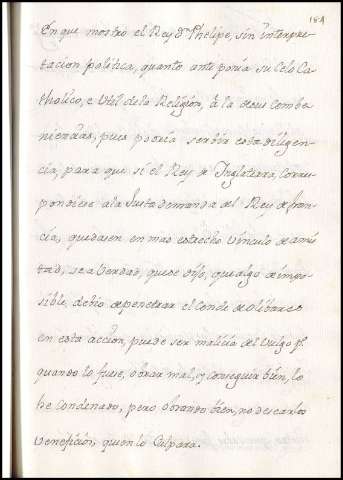 184
En que mostró el Rey Dn Phelipe, sin interpre-
tacion politica, quanto anteponia su Celo Ca-
tholico, e Util de la Religion, à la de sus Combe-
niencias, pues podria servir esta diligen-
cia, para que si el Rey de Inglaterra, Corres-
pondiese a la Justa demanda del Rey de fran-
cia, quedasen en mas estrecho vinculo de amis-
tad, sea verdad, que se dijo, que algo de impo-
sible, debió de penetrar el Conde de Olibares
en esta accion, puede ser malicia del Vulgo pr.
quando lo fuese, obrar mal, y conseguir bien, lo
he Condenado, pero obrando bien, no descarlo
Veneficion, quien lo Culpara.